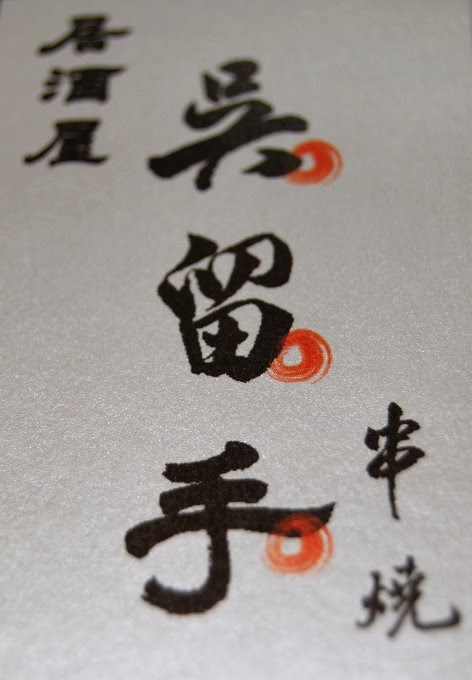 居酒屋
呉留手
串焼